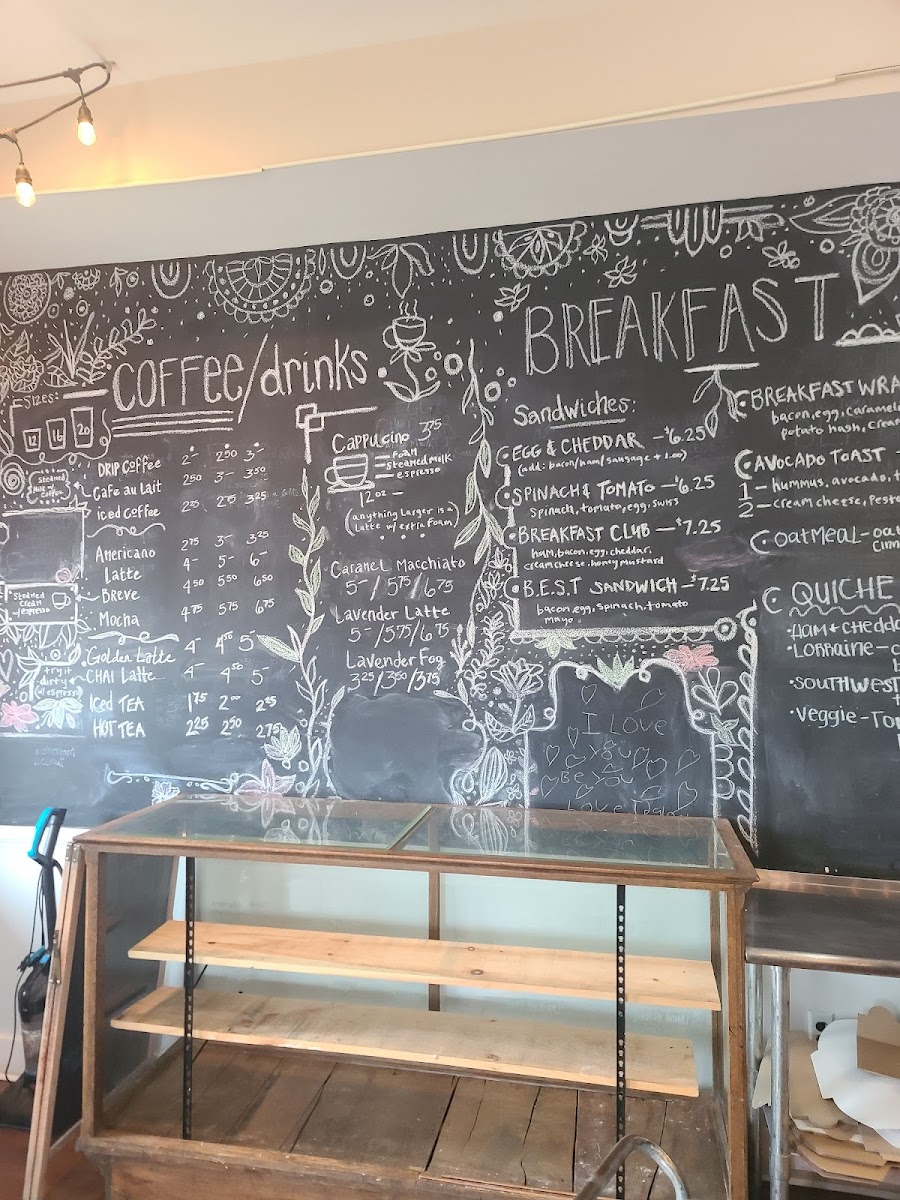 COFFEE/drinks
SIZES:
12 16 20
Steamed
Milk &
Coffee
DRIP COFFEE 2⁻ 2⁵⁰ 3⁻
Cafe au Lait 2⁵⁰ 3⁻ 3⁵⁰
iced coffee 2²⁵ 2⁷⁵ 3.25
Americano 2⁷⁵ 3⁻ 3²⁵
Latte 4⁻ 5⁻ 6⁻
Breve 4⁵⁰ 5⁵⁰ 6⁵⁰
Steamed
cream
w/espresso
Mocha 4⁷⁵ 5⁷⁵ 6⁷⁵
Golden Latte 4⁻ 4⁵⁰ 5⁻
CHAI Latte 4⁻ 4⁵⁰ 5⁻
try it
dirty
w/espresso
Iced TEA 1⁷⁵ 2⁰⁰ 2²⁵
HOT TEA 2²⁵ 2⁵⁰ 2.75
Cappucino 3⁷⁵
FOAM
steamed milk
espresso
12 oz -
(anything larger is a
Latte w/ extra foam)
Caramel Macchiato
5-/5⁷⁵/6⁷⁵
Lavender Latte
5-/5⁷⁵/6⁷⁵
Lavender Fog
3²⁵/3⁵⁰/3⁷⁵
BREAKFAST
Sandwiches:
EGG & CHEDDAR - $6.25
(add: bacon/ham/sausage + 1.00)
SPINACH & TOMATO - $6.25
Spinach, tomato, egg, swiss
BREAKFAST CLUB - $7.25
ham, bacon, egg, cheddar,
creamcheese, honey mustard
B.E.S.T SANDWICH - $7.25
bacon, egg, spinach, tomato
mayo
I Love
you
Be You
BREAKFAST WRA
bacon, egg, caramel
potato hash, crea
AVOCADO TOAST -
1 - Hummus, avocado, t
2 - cream cheese, Pesto
OATMEAL - oat
cinn
QUICHE
·HAM & CHEDDA
·LORRAINE - c
·SOUTHWEST
·Veggie - Tom